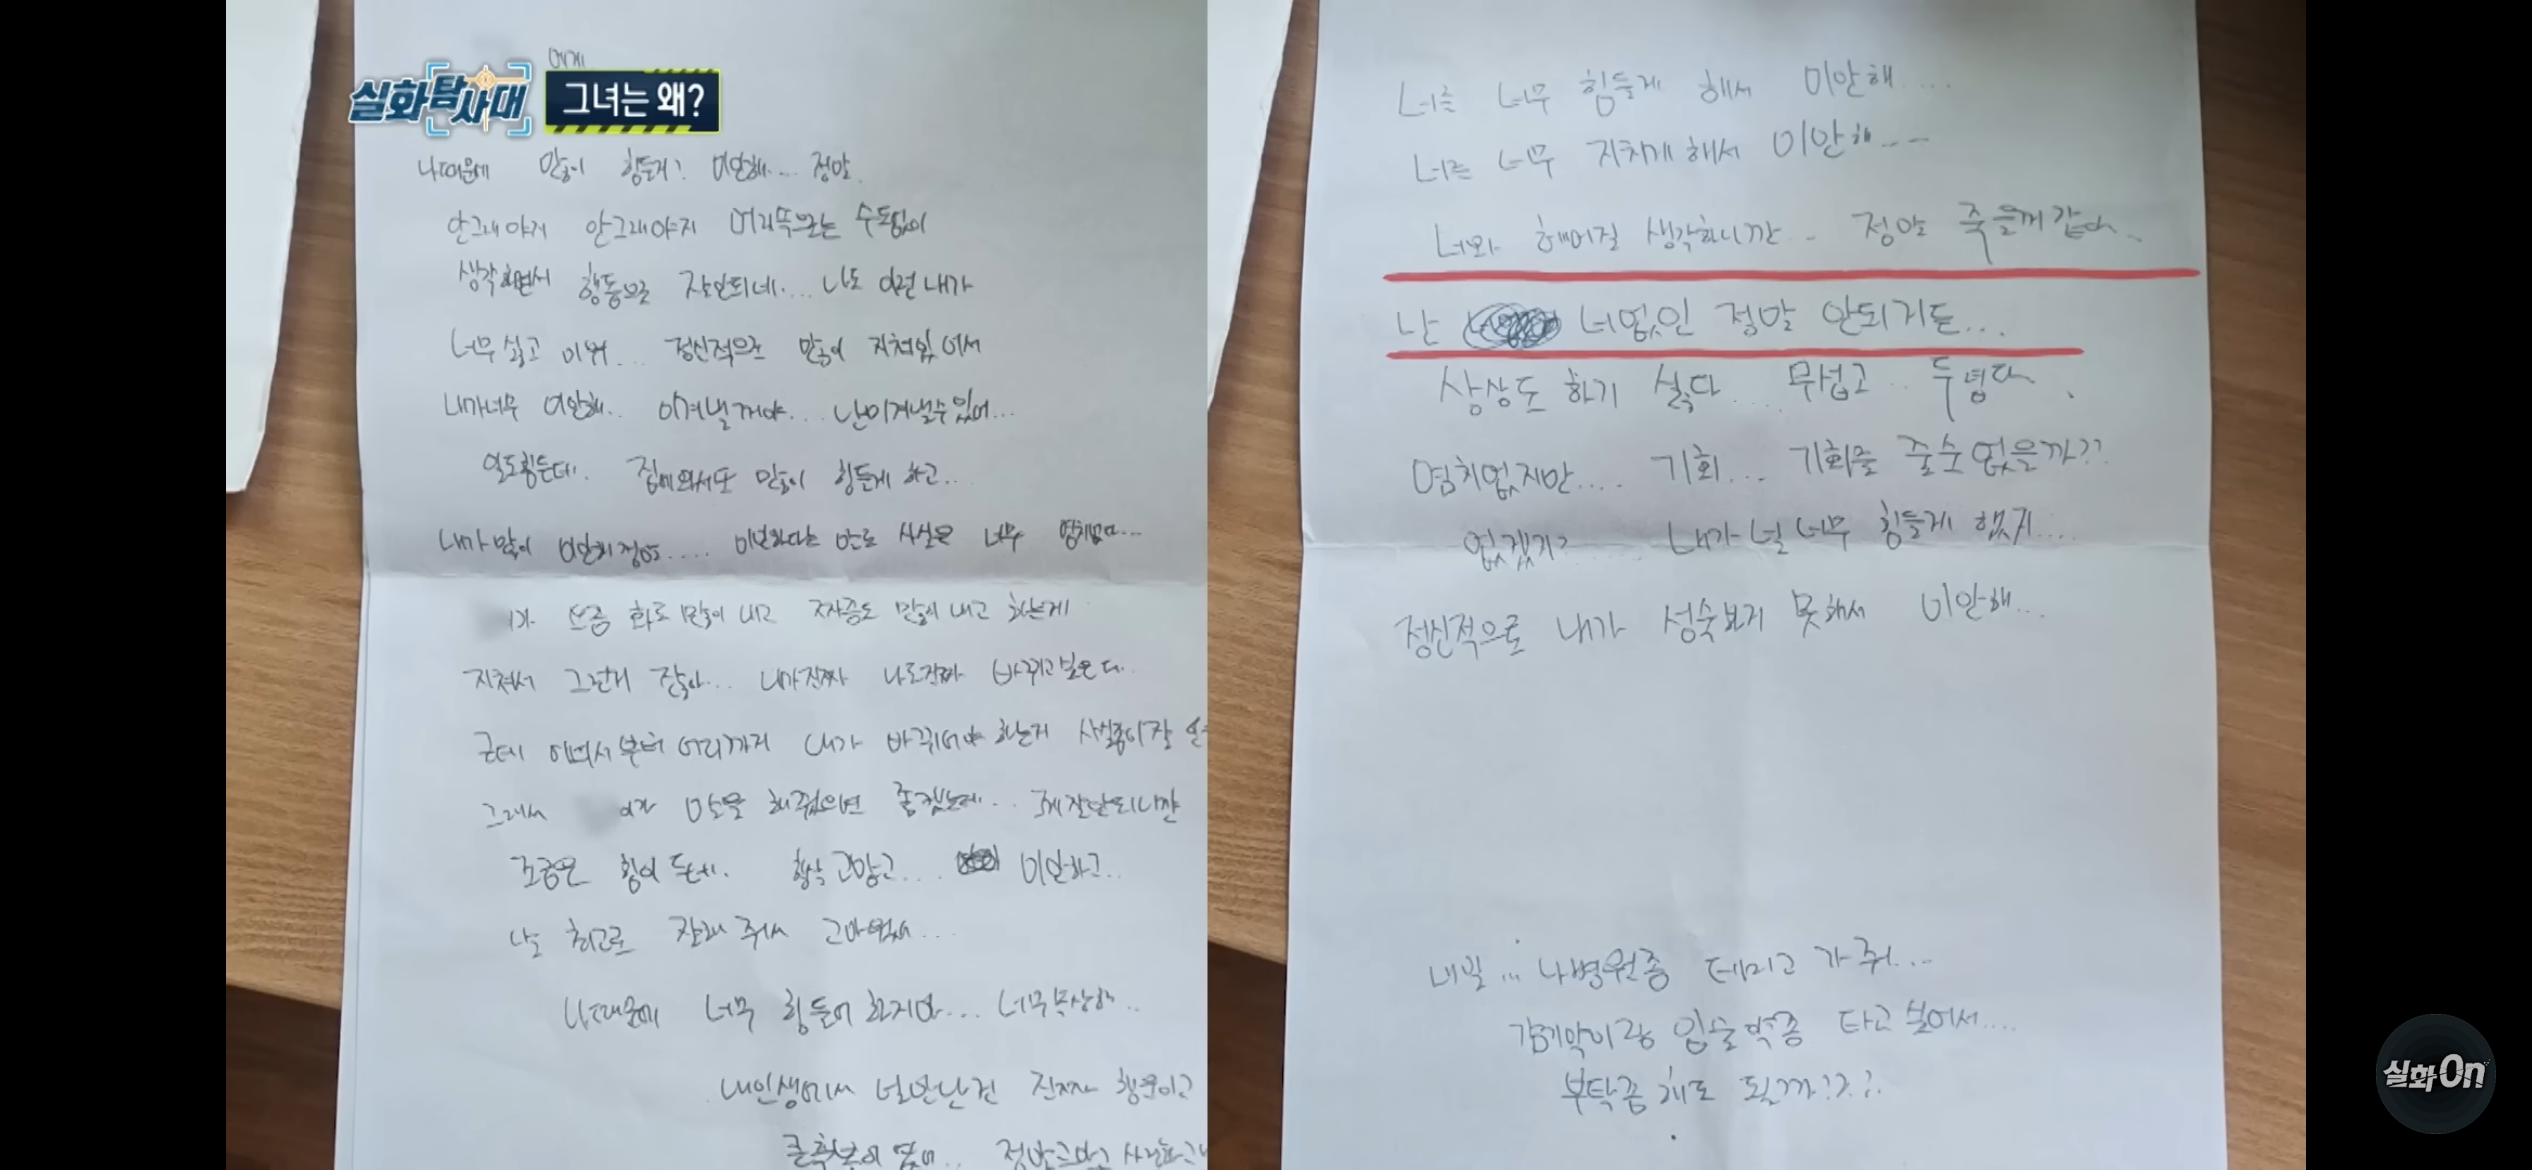 실화탐사대
그녀는 왜?
에게
나때문에 많이 힘들지? 미안해.... 정말
안그래야지 안그래야지 머리쪽으로는 수도없이
생각하면서 행동으로 잘안되네.... 나도 이런 내가
너무 싫고 미워... 정신적으로 많이 지쳐있어서
내가너무 미안해.. 이겨낼거야... 난이겨낼수있어...
일도힘든데. 집에와서또 많이 힘들게 하고...
내가많이 미안해 정말.... 미안하다는 말로 사실은 너무 염치없다...
가 요즘 화도 많이 내고 짜증도 많이 내고 하는게
지쳐서 그런거 잖아... 내가진짜 나도진짜 바뀌고싶은데..
근데 어디서부터 어디까지 내가 바뀌어야 하는지 사실좀이잘
그래서 가 도움을 해줬으면 좋겠는데...
조금은 힘이 드네. 항상 고맙고.... 미안하고..
날 최고로 잘해 줘서 고마웠어...
나때문에 너무 힘들어 하지마... 너무속상해..
내인생에서 널만난건 진짜 행운이고
큰축복이 였어..
너를 너무 힘들게 해서 미안해....
너를 너무 지치게해서 미안해...
너와 헤어질 생각하니깐.. 정말 죽을꺼같다..
난 너없인 정말 안되거든...
상상도 하기 싫다.... 무섭고.. 두렵다.
염치없지만.... 기회... 기회를 줄수 없을까??
없겠지?.... 내가 널 너무 힘들게 했지....
정신적으로 내가 성숙하지 못해서 미안해...
내일... 나병원좀 데리고 가 줘...
감기약이랑 입술약좀 타고 싶어서....
부탁좀 해도 될까???.
실화On